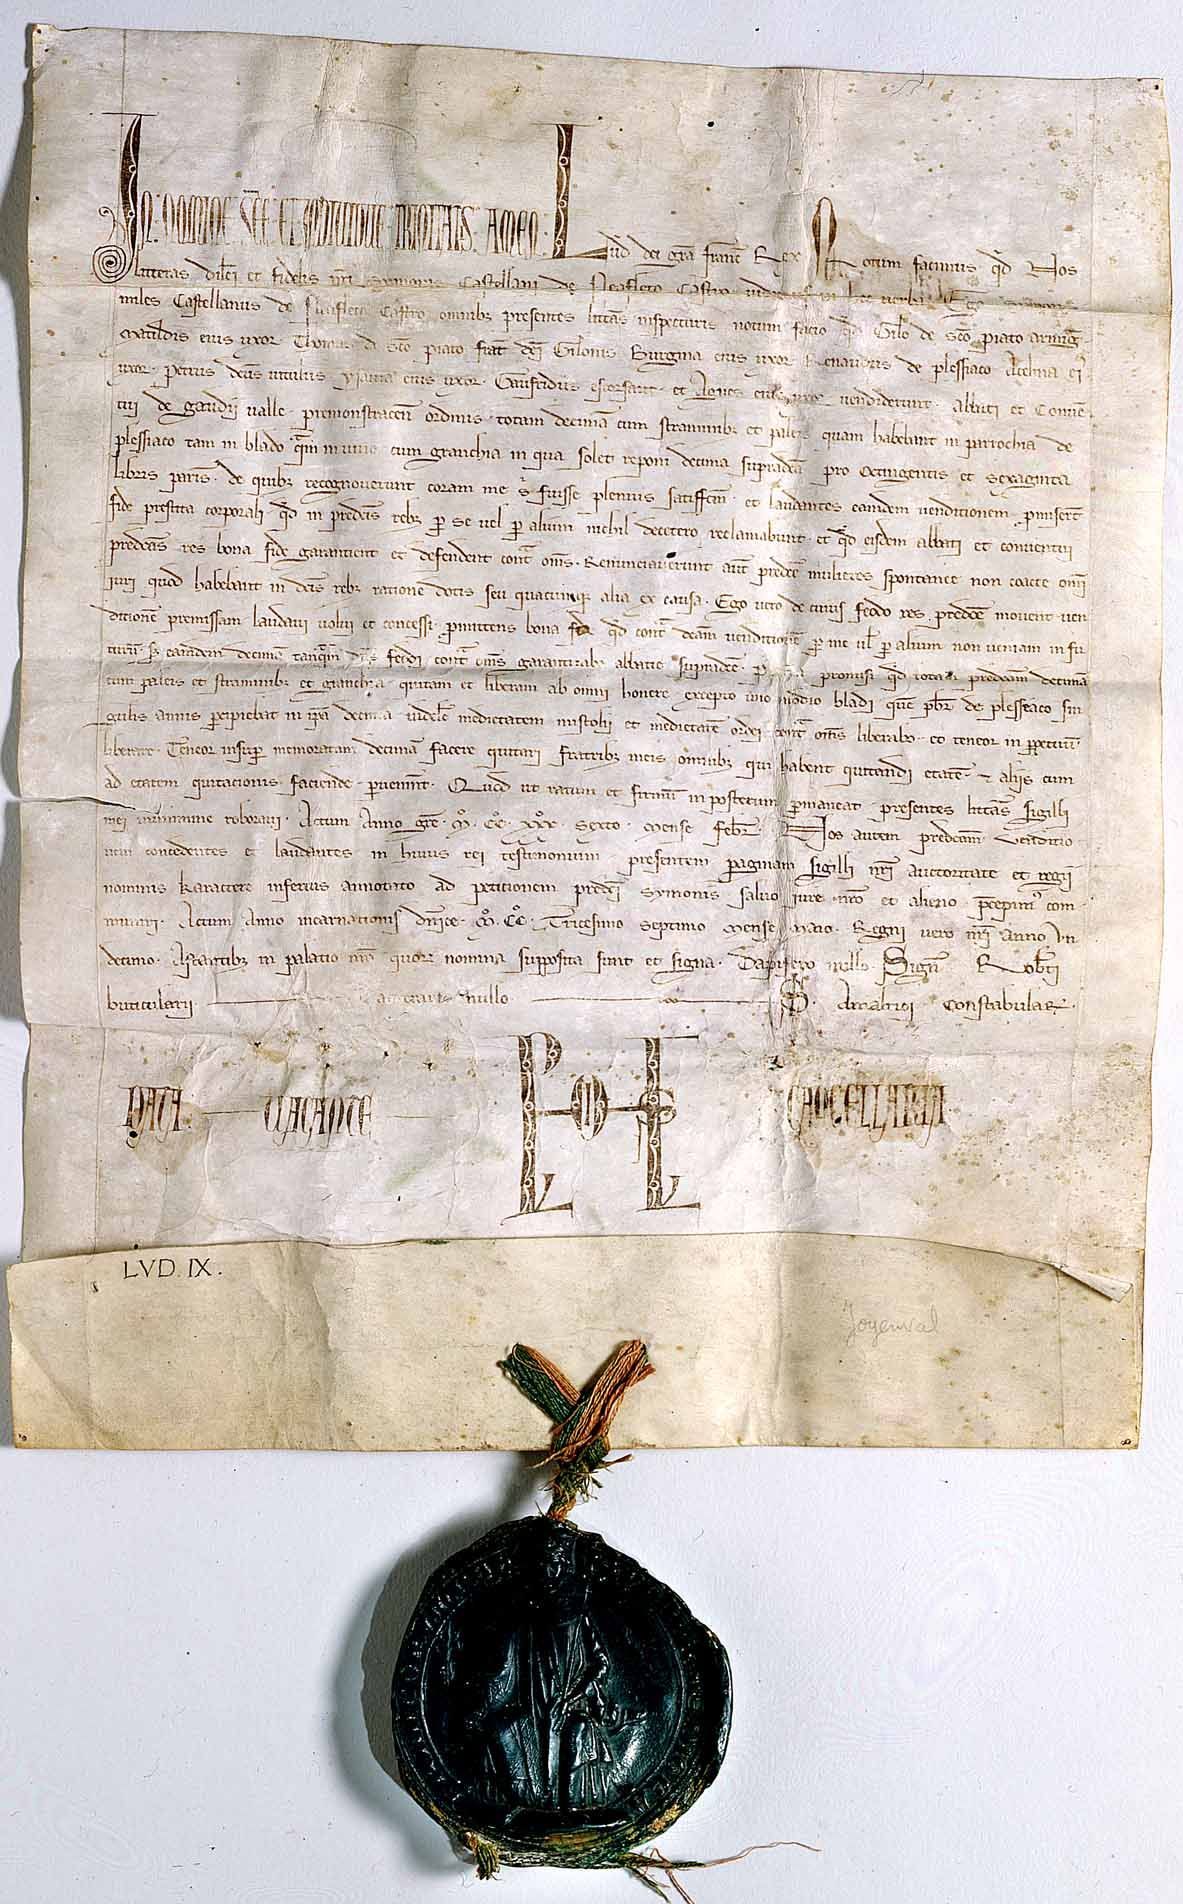 IN NOMINE SCE ET INDIVIDUE TRINITATIS AMEN. Lud dei gra francie Rex Notum facimus qd Nos
litteras dilecti et fidelis nri Symonis Castellani de Neafleta Castro in hec verba Ego
miles Castellanus de Neafleta Castro omnibz presentes litteras inspecturis notum facio qd Gilo de sco piato armig
Matildis eius uxor Thomas de sco piato frater dci Gilonis Burgina eius uxor Renaudus de plessiaco Acelina ei
uxor. Petrus dcus vitulus eius uxor. Gaufridus et Agnes eius uxor vendiderunt. abbati et Conve
tui de gaudii valle. premonstracen ordinis. totam decimam cum straminibz et paleis quam habebant in parrochia de
plessiaco tam in blado qm in vino cum granchia in qua solet reponi decima supradca pro Octingentis et sexaginta
libris paris. de quibz recognoverunt coram me sibi fuisse plenius satisfcm. et laudantes eandem venditionem promiserunt
fide prestita corporali qd in predcis rebz per se vel per alium nichil decetero reclamabunt. et qd eisdem abbati et conventui
predcas res bona fide garantient et defendent contra oms. Renunciaverunt aut predce mulieres spontanee non coacte omi
iuri quod habebant in dcis rebz ratione dotis seu quacumque alia ex causa. Ego vero de cuius feodo res predce movent ven
ditionem premissam laudavi volui et concessi. promittens bona fide qd contra dcam venditionem per me vel per alium non veniam in fu
turum. sz eamdem decimam tanqm dns feodi contra oms garantirabo abbatie supradce. promisi qd totam predcam decimam
cum paleis et straminibz et granchia. quitam et liberam ab omni honere excepto uno modio bladi quem pbr de plesseaco sin
gulis annis percipiebat in ipsa decima videlicet medietatem mistolii et medietatem ordei contra oms liberabo. et teneor in perpetuum
liberare. Teneor insuper memoratam decimam facere quitari fratribz meis omnibz qui habent quittandi etatem. et aliis cum
ad etatem quitacionis faciende pervenerint. Quod ut ratum et firmum in posterum permaneat. presentes litteras sigilli
mei munimine roboravi. Actum Anno gre. M. CC. XXX. sexto. mense febr. Nos autem predcam venditio
nem concedentes et laudantes in huius rei testimonium presentem paginam sigilli nri auctoritate et regii
nominis karactere inferius annotato ad petitionem predci Symonis salvo iure nro et alieno precepim com
muniri. Actum Anno incarnationis dnice. M. CC. Tricesimo septimo mense Maio. Regni vero nri anno un
decimo. Astantibz in palatio nro quorum nomina supposita sunt et signa. Dapifero nullo. Signum Robti
buticularii. Camerario nullo S. Amalrici Constabularii.
DATA VACANTE CANCELLARIA
LVD. IX.
Joyenval